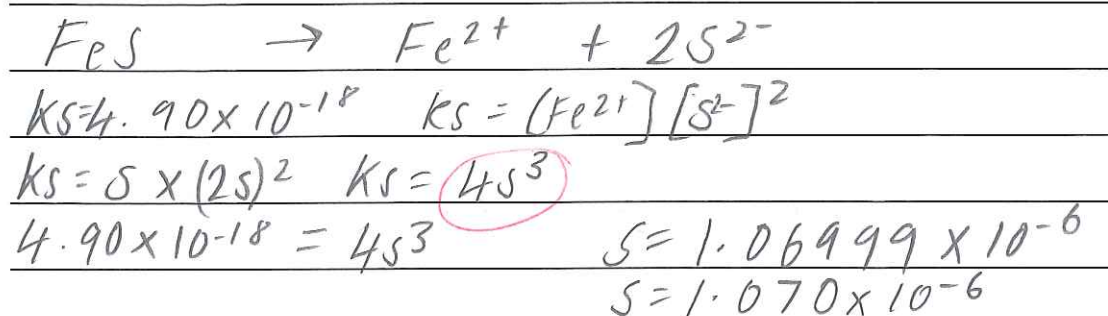 FeS → Fe²⁺ + 2S²⁻
Ks=4.90×10⁻¹⁸ Ks = [Fe²⁺][S²⁻]²
Ks = s × (2s)² Ks = 4s³
4.90×10⁻¹⁸ = 4s³ s = 1.06999 × 10⁻⁶
s = 1.070×10⁻⁶